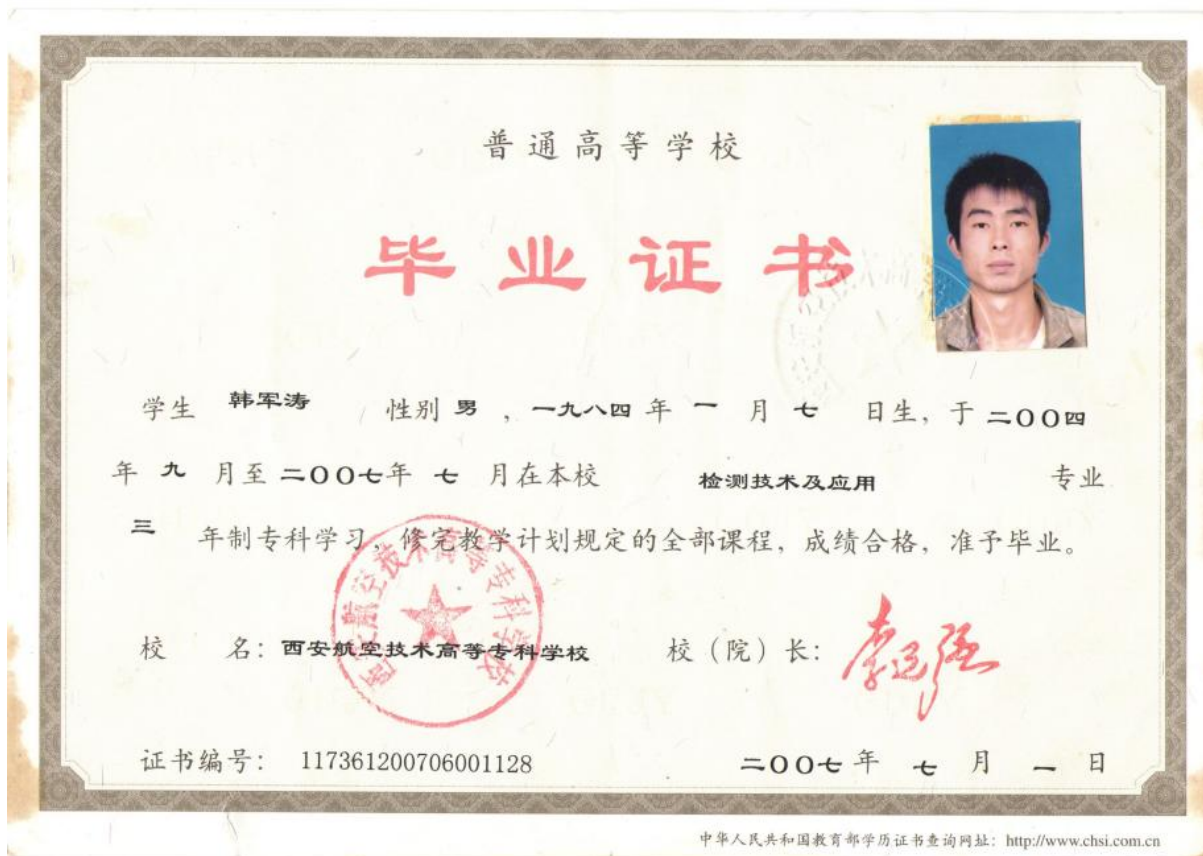 普通高等学校
毕业证书
学生 韩军涛 性别 男 ，一九八四 年 一 月 七 日生，于 二〇〇四
年 九 月至 二〇〇七年 七 月在本校 检测技术及应用 专业
三 年制专科学习，修完教学计划规定的全部课程，成绩合格，准予毕业。
西安航空技术高等专科学校
校 名：西安航空技术高等专科学校 校（院）长：
证书编号： 117361200706001128 二〇〇七 年 七 月 一 日
中华人民共和国教育部学历证书查询网址：http://www.chsi.com.cn